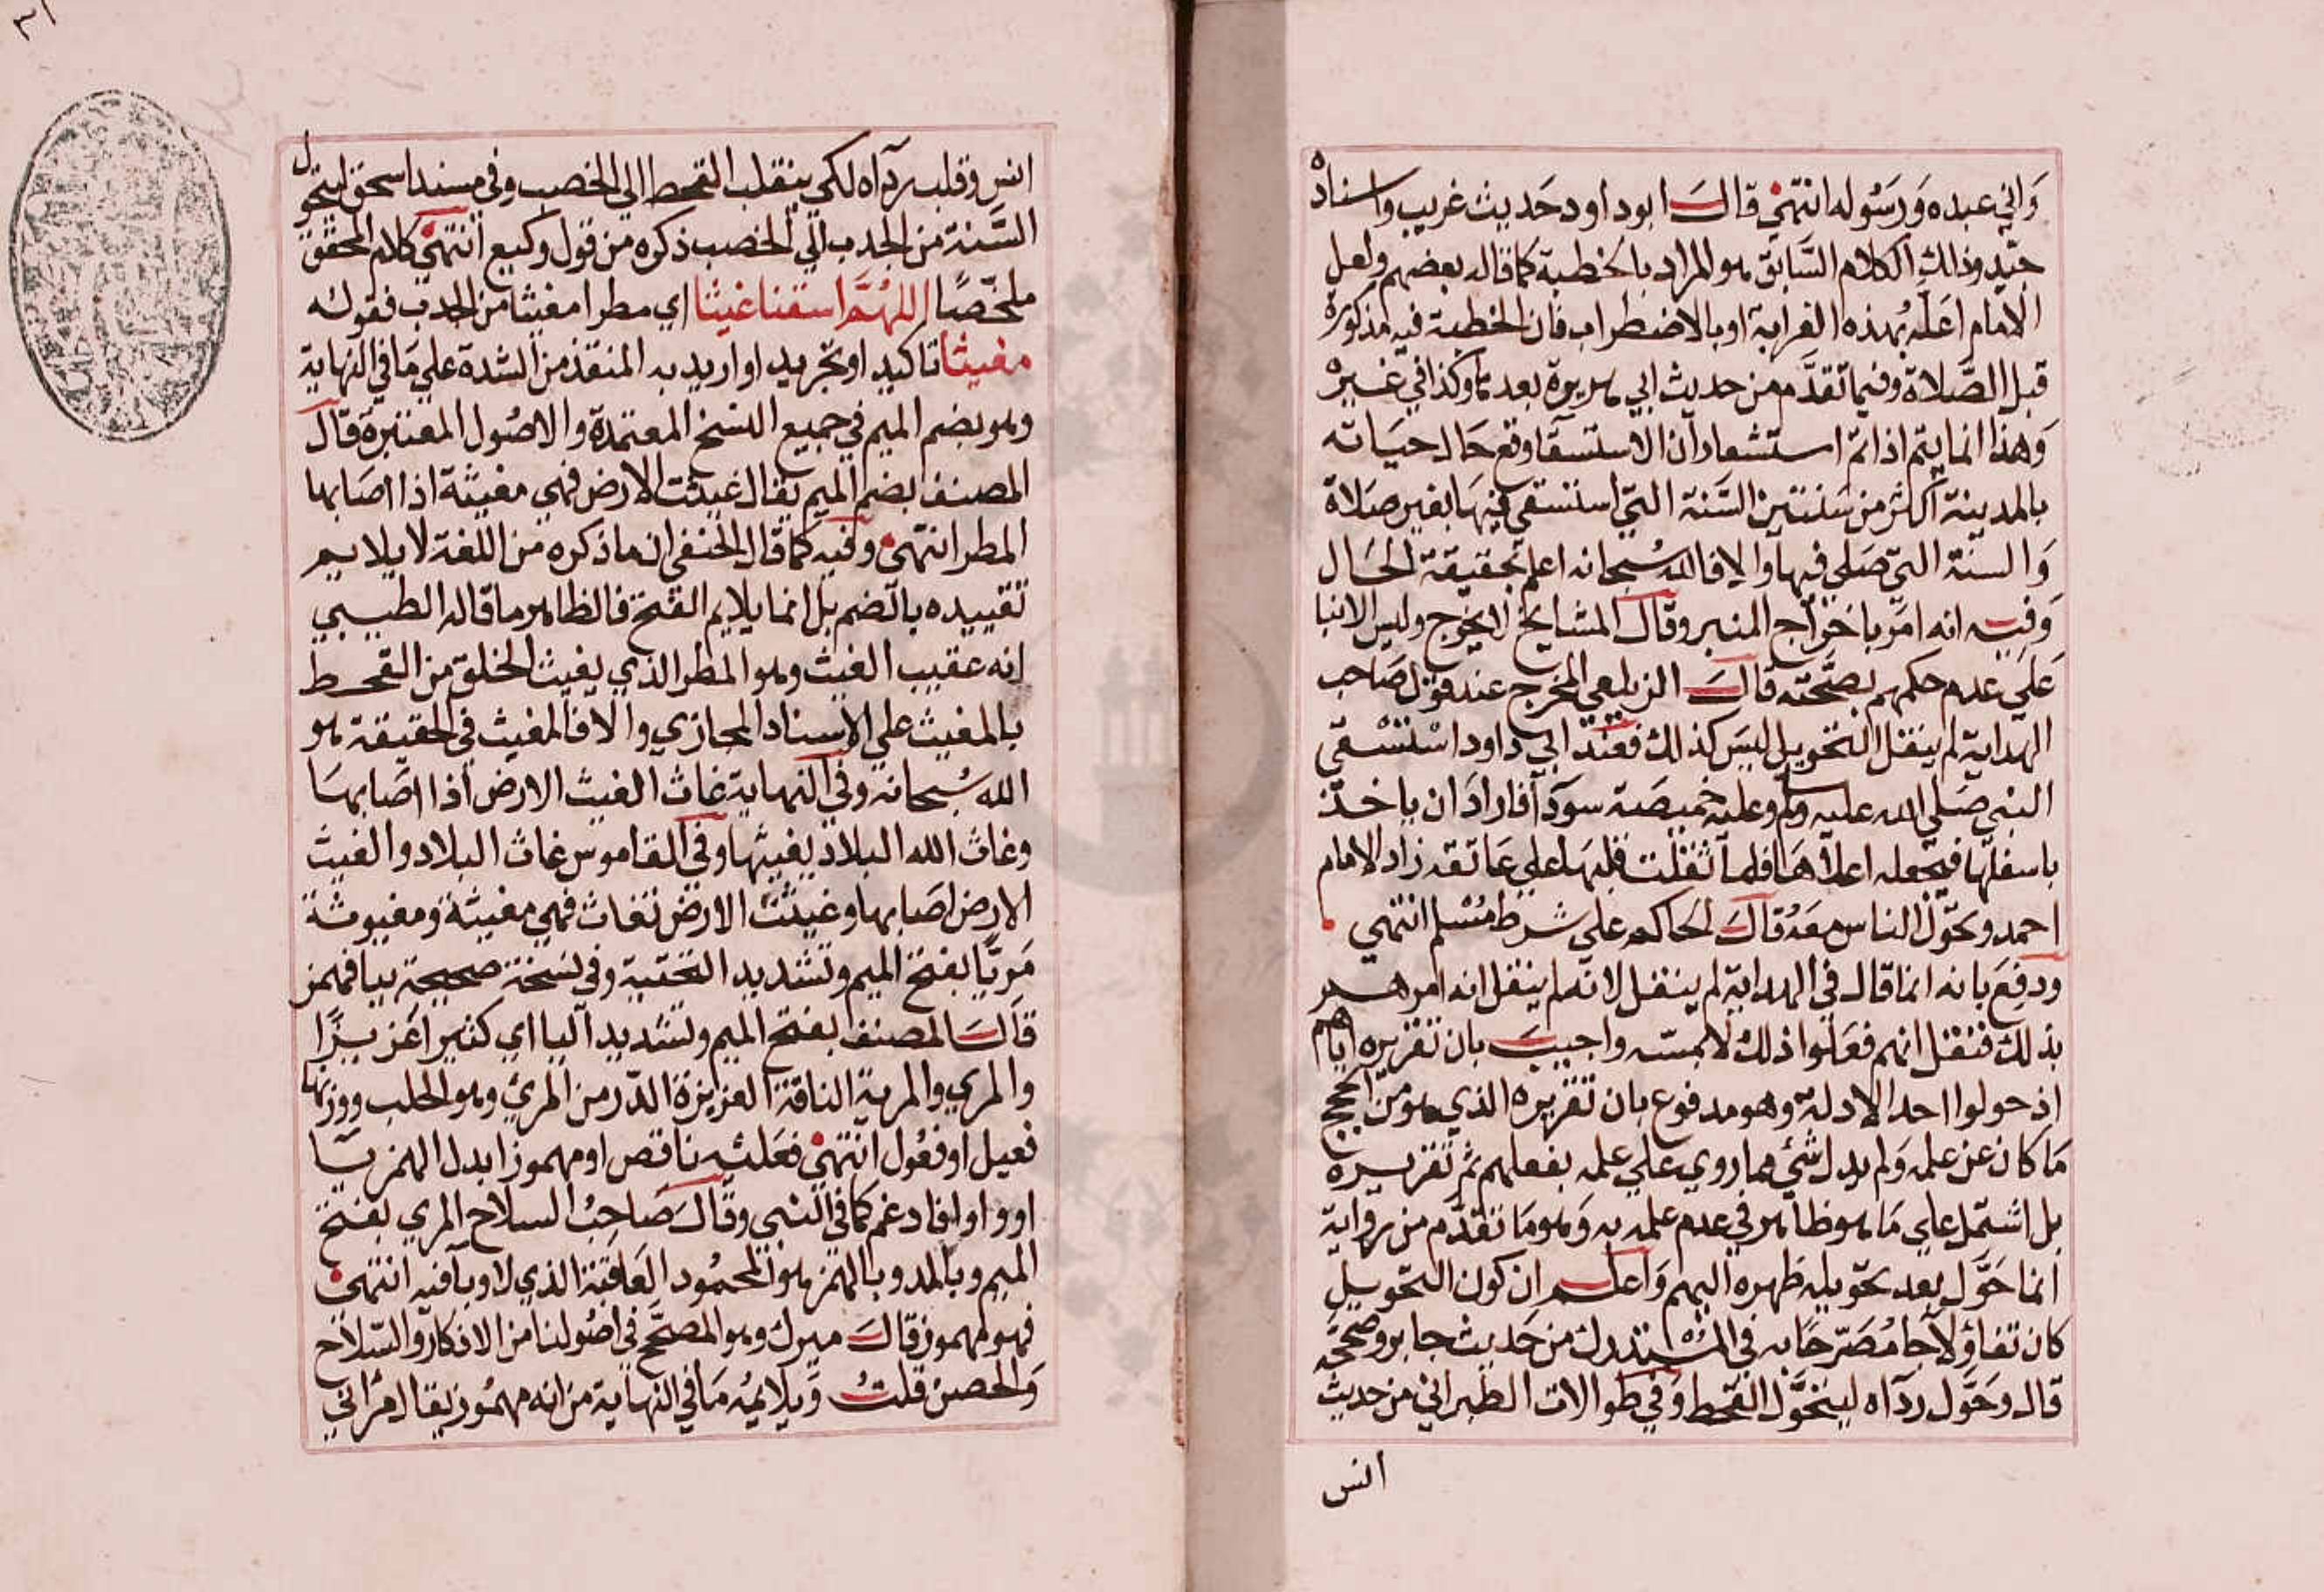 واني عبده ورسوله انتهى قال ابو داود حديث غريب واسناده
جيد وذلك الكلام السابق هو المراد بالخطبة كما قاله بعضهم ولعل
الامام اعله بهذه الغرابة او بالاضطراب فان الخطبة فيه مذكورة
قبل الصلاة وفيما تقدم من حديث ابي هريرة بعدها وكذا في غيره
وهذا انما يتم اذا تم استشعار ان الاستسقا وقع حال حياته
بالمدينة اكثر من سنتين السنة التي استسقى فيها بغير صلاة
والسنة التي صلي فيها والا فالله سبحانه اعلم بحقيقة الحال
وفيه انه امر باخراج المنبر وقال المشايخ لا يخرج وليس الا بنا
علي عدم حكمهم بصحته قال الزيلعي المخرج عند قول صاحب
الهداية لم ينقل التحويل ليس كذلك فعند ابي داود استسقى
النبي صلي الله عليه وسلم وعليه خميصة سودآ فاراد ان ياخذ
باسفلها فيجعله اعلاها فلما ثقلت قلبها علي عاتقه زاد الامام
احمد وتحول الناس معه قال الحاكم علي شرط مسلم انتهي
ودفع بانه انما قال في الهداية لم ينقل لانه لم ينقل انه امرهم
بذلك فنقل انهم فعلوا ذلك لا يمسه واجيب بان تقريره اياهم
اذ حولوا احد الادلة وهو مدفوع بان تقريره الذي هو من الحجج
ما كان عن علمه ولم يدل شئ مما روي علي علمه بفعلهم ثم تقريره
بل اشتمل علي ما هو ظاهر في عدم علمه به وهو ما تقدم من رواية
انما حول بعد تحويله ظهره اليهم واعلم ان كون التحويل
كان تفاؤلا جا مصرحا به في المستدرك من حديث جابر وصححه
قال وحول ردآه ليتحول القحط وفي طوالات الطبراني من حديث
انس
انس وقلب ردآه لكي ينقلب القحط الي الخصب وفي مسند اسحق لتتحول
السنة من الجدب الي الخصب ذكره من قول وكيع انتهى كلام المحقق
ملخصا اللهم اسقنا غيثا اي مطرا مغيثا من الجدب فقوله
مغيثا تاكيد او تجريد او اريد به المنقذ من الشدة علي ما في النهاية
وهو بضم الميم في جميع النسخ المعتمدة والاصول المعتبرة قال
المصنف بضم الميم يقال غيثت الارض فهي مغيثة اذا اصابها
المطر انتهى وفيه كما قال الحنفي ان ما ذكره من اللغة لا يلايم
تقييده بالضم بل انما يلايم الفتح فالظاهر ما قاله الطيبي
انه عقيب الغيث وهو المطر الذي يغيث الخلق من القحط
بالمغيث علي الاسناد المجازي والا فالمغيث في الحقيقة هو
الله سبحانه وفي النهاية غاث الغيث الارض اذا اصابها
وغاث الله البلاد يغيثها وفي القاموس غاث البلاد والغيث
الارض اصابها وغيثت الارض تغاث فهي مغيثة ومغيوثة
مريا بفتح الميم وتشديد التحتية وفي نسخة صحيحة بيا فهمز
قال المصنف بفتح الميم وتشديد اليا اي كثيرا غزيزا
والمري والمرية الناقة الغزيزة الدر من المرئ وهو الحلب ووزنها
فعيل او فعول انتهى فعلته ناقص او مهموز ابدل الهمز يا
او واوا فادغم كما في النبي وقال صاحب السلاح المري بفتح
الميم وبالمد وبالهمز هو المحمود العاقبة الذي لا وبآ فيه انتهى
فهو مهموز قال ميرك وهو المصحح في اصولنا من الاذكار والسلاح
والحصن قلت ويلايمه ما في النهاية من انه مهموز يقال مراني